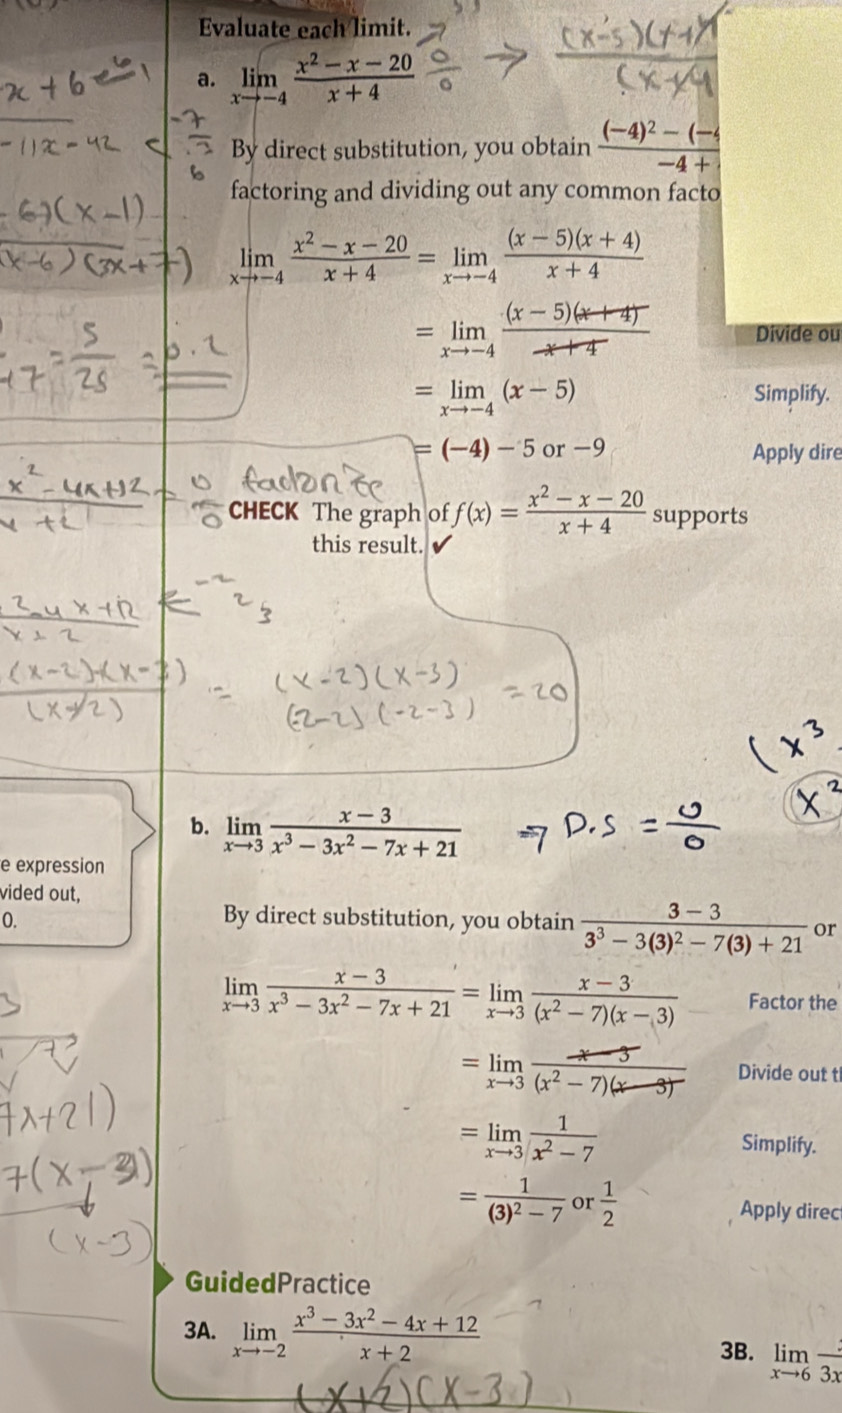 Evaluate each limit.
a. lim x→−4 (x² − x − 20)/(x + 4) 0/0 → (x-5)(x+4)/(x+4)
x + 6
-11x - 42
By direct substitution, you obtain (−4)² − (−4
−4 +
factoring and dividing out any common facto
6)(x-1)
(x-6)(3x+7)
lim x→−4 (x² − x − 20)/(x + 4) = lim x→−4 (x − 5)(x + 4)/(x + 4)
= lim x→−4 (x − 5)(x + 4)/(x + 4) Divide ou
+7 = 5/25 = 0.2
= lim x→−4 (x − 5) Simplify.
= (−4) − 5 or −9 Apply dire
x² - 4x + 12 0/0
CHECK The graph of f(x) = (x² − x − 20)/(x + 4) supports
this result. ✓
(x-2)(x-3)/(x+2) = (x-2)(x-3)
(-2-2)(-2-3) = 20
(x³
x²
b. lim x→3 (x − 3)/(x³ − 3x² − 7x + 21) ⇒ D.S = 0/0
e expression
vided out,
0.
By direct substitution, you obtain (3 − 3)/(3³ − 3(3)² − 7(3) + 21) or
lim x→3 (x − 3)/(x³ − 3x² − 7x + 21) = lim x→3 (x − 3)/((x² − 7)(x − 3)) Factor the
= lim x→3 (x − 3)/((x² − 7)(x − 3)) Divide out t
7x+21)
= lim x→3 1/(x² − 7) Simplify.
7(x-3)
= 1/((3)² − 7) or 1/2 Apply direc
(x-3)
GuidedPractice
3A. lim x→−2 (x³ − 3x² − 4x + 12)/(x + 2)
3B. lim x→6 3x
(x+2)(x-3)